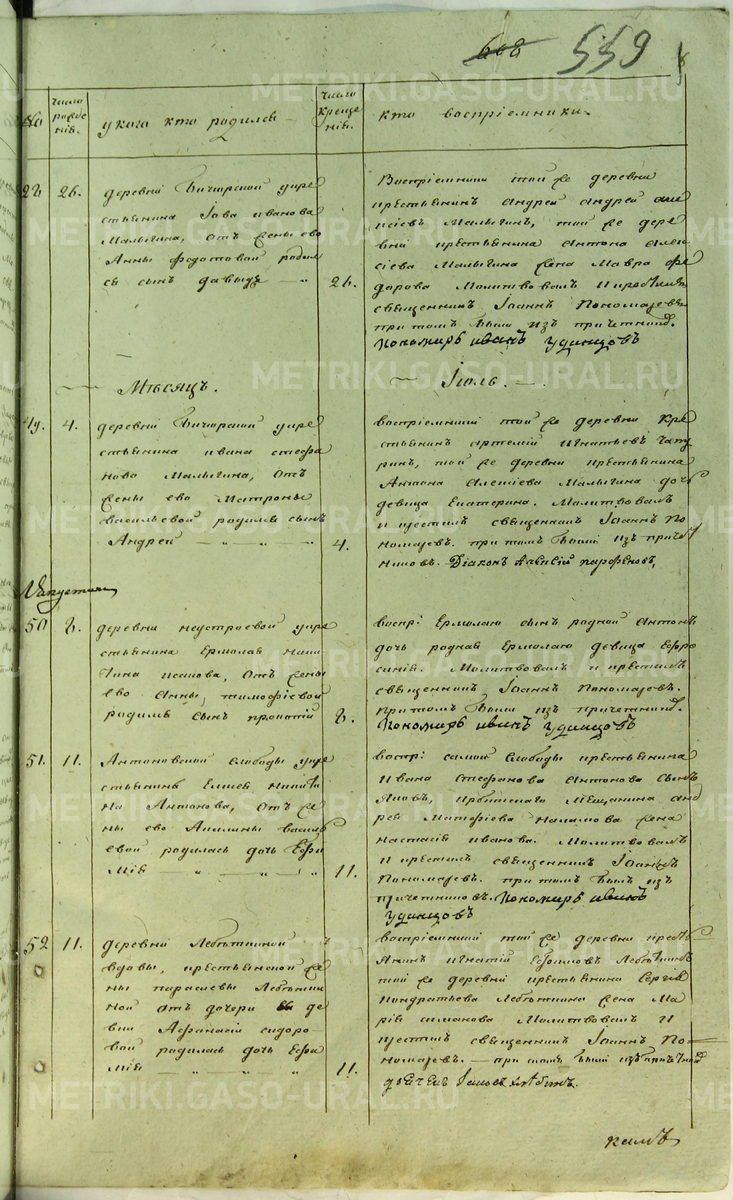 608 559
METRIKI.GASO-URAL.RU
No
число рожде нія.
у кого кто родился
число креще нія.
кто воспріемники
26.
деревни Бичурской у кре
стьянина Іова иванова
Малыгина, отъ жены ево
Анны Федотовой родил
ся сынъ давыдъ
26.
Воспріемники той же деревни
крестьянинъ Андрей
Малыгинъ, той же дере
вни крестьянина Антона Алек
сіева Малыгина жена Мавра Фе
дорова Молитвовалъ и крестилъ
священникъ Іоаннъ Пономаревъ
при томъ былъ изъ причетник.
пономарь иванъ Удинцовъ
Мѣсяцъ.
Іюль.
49.
4.
деревни Бичурской у кре
стьянина ивана стефа
нова Малыгина, отъ
жены ево Матроны
васильевой родился сынъ
Андрей
4.
воспріемники той же деревни кре
стьянинъ артемій игнатьевъ
той же деревни крестьянина
Антона Алексіева Малыгина дочь
девица Екатерина. Молитвовалъ
и крестилъ священникъ Іоаннъ По
номаревъ. при томъ былъ изъ прич
никовъ. Діаконъ Алексій парфеновъ,
50
8.
деревни неустроевой у кре
стьянина Ермолая ники
тина исакова, отъ жены
ево Анны, тимофіевой
родился сынъ прокопій
8.
воспр: Ермолаю сынъ родной Антонъ
дочь родная Ермолаю девица Евфро
синія. Молитвовалъ и крестилъ
священникъ Іоаннъ Пономаревъ.
при томъ былъ изъ причетник.
пономарь иванъ Удинцовъ
51.
11.
Антоновской слободы у кре
стьянина Елисея никити
на Антонова, отъ же
ны ево Акилины василь
евой родилась дочь Евфи
мія
11.
воспр: самой слободы крестьянина
ивана стефанова Антонова сынъ
Яковъ, ирбитскаго мещанина анд
рея Матфіева жена
настасія иванова. Молитвовалъ
и крестилъ священникъ Іоаннъ
Пономаревъ. при томъ былъ изъ
причетниковъ. пономарь иванъ
Удинцовъ
52
11.
деревни Лебѣткиной у
вдовы, крестьянской же
ны парасковьи Лебѣтки
ной отъ дочери ея де
вки Афанасіи сидоро
вой родилась дочь Евфи
мія
11.
воспріемники той же деревни кресть
янинъ игнатій Лебѣткинъ
той же деревни крестьянина Сергія
кондратьева Лебѣткина жена Ма
рія симанова Молитвовалъ и
крестилъ священникъ Іоаннъ По
номаревъ. при томъ былъ изъ причетник
дьячекъ Іаковъ хлѣбинъ.
METRIKI.GASO-URAL.RU